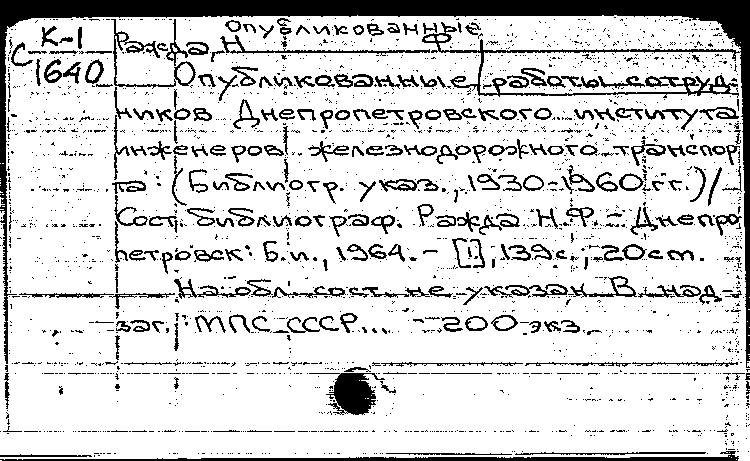 Опубликованные
К-1 Ражда, Н Ф
С 1640 Опубликованные работы сотруд-
ников Днепропетровского института
инженеров железнодорожного транспор
та: (Библиогр. указ., 1930-1960 гг.)/
Сост. библиограф. Ражда Н.Ф. - Днепро
петровск: Б.и., 1964. - [1], 139с.; 20 cm.
На обл. сост. не указан. В над-
заг.: МПС СССР... - 200 экз.